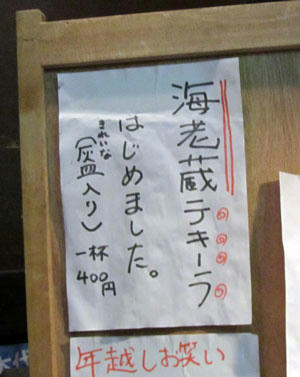 海老蔵テキーラ
はじめました。
きれいな
(灰皿入り)
一杯
400円
年越しお笑い